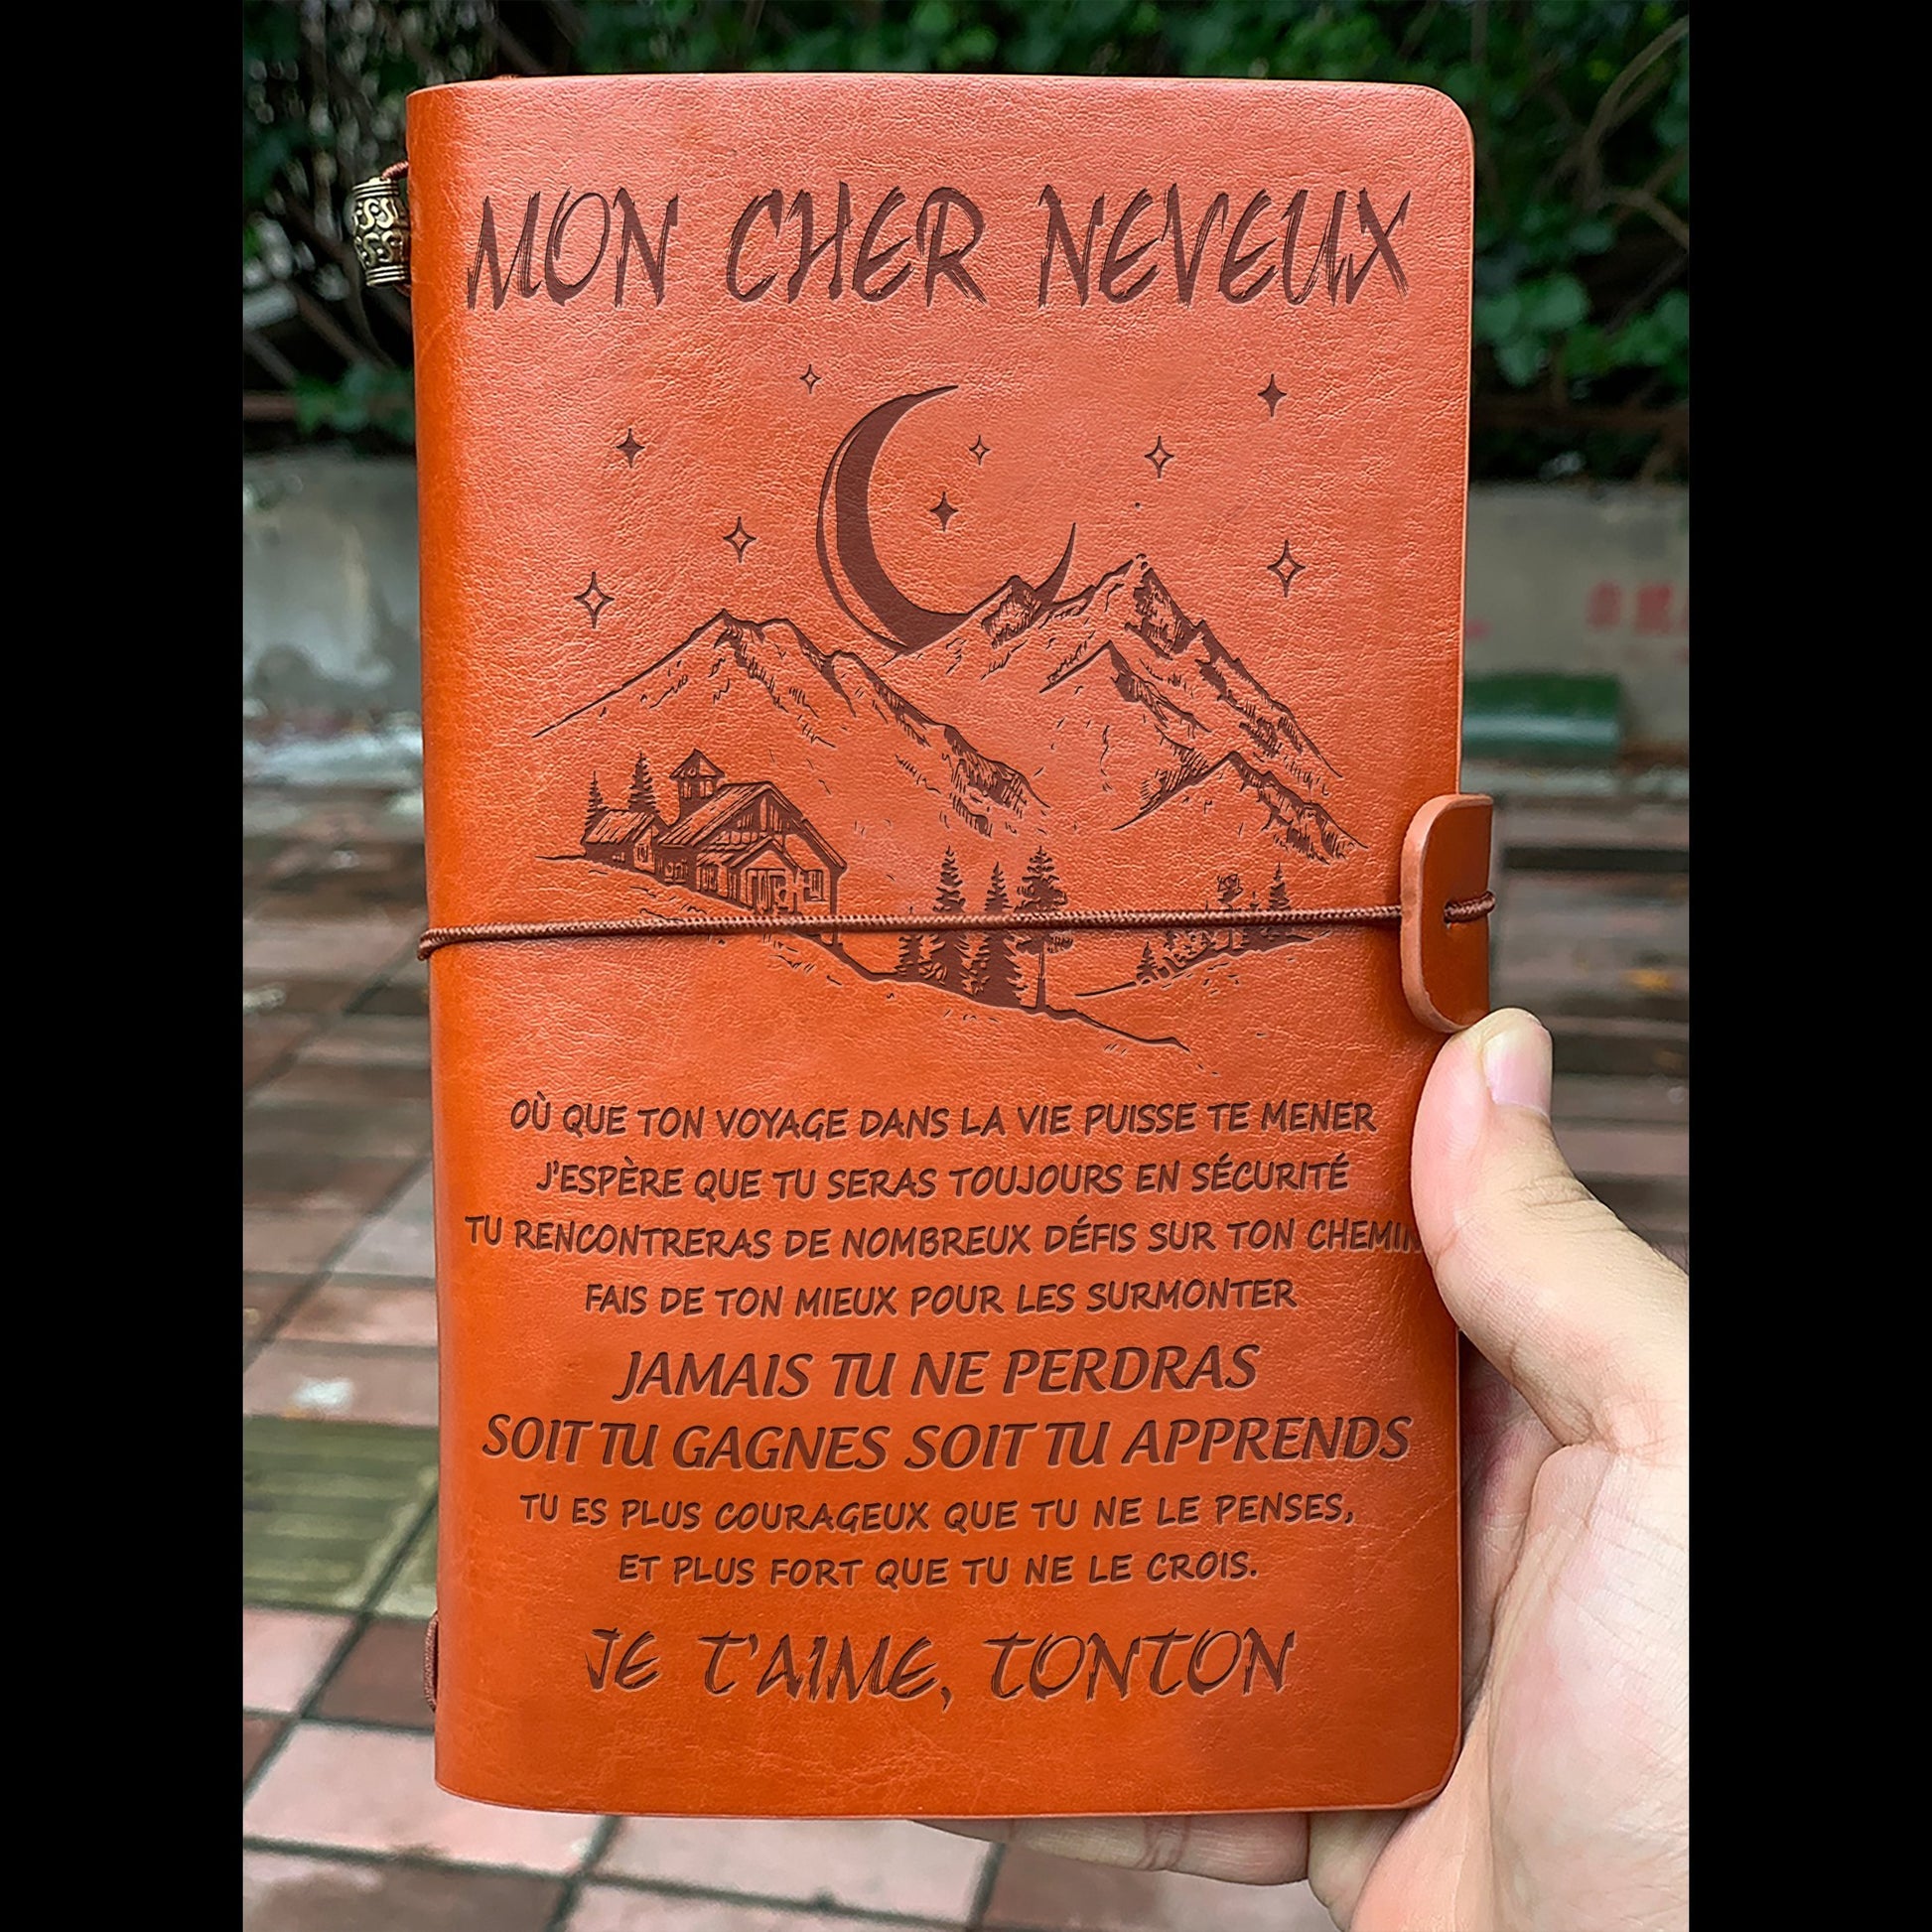 MON CHER NEVEUX
OÙ QUE TON VOYAGE DANS LA VIE PUISSE TE MENER
J'ESPÈRE QUE TU SERAS TOUJOURS EN SÉCURITÉ
TU RENCONTRERAS DE NOMBREUX DÉFIS SUR TON CHEMIN
FAIS DE TON MIEUX POUR LES SURMONTER
JAMAIS TU NE PERDRAS
SOIT TU GAGNES SOIT TU APPRENDS
TU ES PLUS COURAGEUX QUE TU NE LE PENSES,
ET PLUS FORT QUE TU NE LE CROIS.
JE T'AIME, TONTON